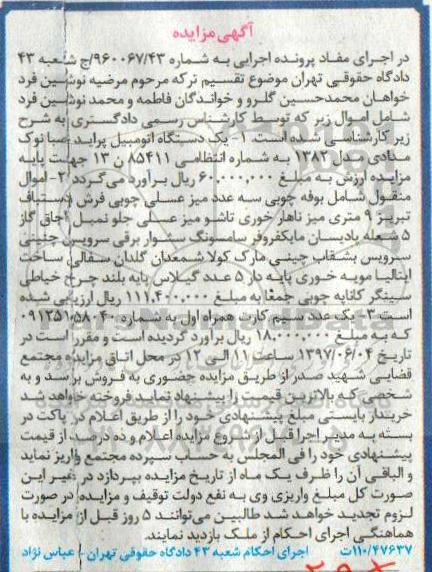 آگهی مزایده
در اجرای مفاد پرونده اجرایی به شماره ۹۶۰۰۶۷/۴۳/ج شعبه ۴۳
دادگاه حقوقی تهران موضوع تقسیم ترکه مرحوم مرضیه نوشین فرد
خواهان محمدحسین گلرو و خواندگان فاطمه و محمد نوشین فرد
شامل اموال زیر که توسط کارشناس رسمی دادگستری به شرح
زیر کارشناسی شده است. ۱- یک دستگاه اتومبیل پراید صبا نوک
مدادی مدل ۱۳۸۲ به شماره انتظامی ۸۵۴۱۱ ن ۱۳ جهت پایه
مزایده ارزش به مبلغ ۶۰،۰۰۰،۰۰۰ ریال برآورد می‌گردد ۲- اموال
منقول شامل بوفه چوبی سه عدد میز عسلی چوبی فرش دستباف
تبریز ۹ متری میز ناهار خوری تاشو میز عسلی جلو مبل اجاق گاز
۵ شعله بادیان مایکفروفر سامسونگ سئوار برقی سرویس چینی
سرویس بشقاب چینی مارک کولا شمعدان گلدان سفالی ساخت
ایتالیا مویه خوری پایه دار ۵ عدد گیلاس پایه بلند چرخ خیاطی
سینگر کاناپه چوبی جمعا به مبلغ ۱۱۱،۴۰۰،۰۰۰ ریال ارزیابی شده
است ۳- یک عدد سیم کارت همراه اول به شماره ۰۹۱۳۵۱۰۵۸۰۴۰
که به مبلغ ۱۸،۰۰۰،۰۰۰ ریال برآورد گردیده است و مقرر است در
تاریخ ۱۳۹۷/۰۶/۰۴ ساعت ۱۱ الی ۱۲ در محل اتاق مزایده مجتمع
قضایی شهید صدر از طریق مزایده حضوری به فروش برسد و به
شخصی که بالاترین قیمت را پیشنهاد نماید فروخته خواهد شد
خریدار بایستی مبلغ پیشنهادی خود را از طریق اعلام در پاکت در
بسته به مدیر اجرا قبل از شروع مزایده اعلام و ده درصد از قیمت
پیشنهادی خود را فی المجلس به حساب سپرده مجتمع واریز نماید
و الباقی آن را ظرف یک ماه از تاریخ مزایده بپردازد در غیر این
صورت کل مبلغ واریزی وی به نفع دولت توقیف و مزایده در صورت
لزوم تجدید خواهد شد طالبین می‌توانند ۵ روز قبل از مزایده با
هماهنگی اجرای احکام از ملک بازدید نمایند.
۱۱۰/۴۷۶۳۷ت اجرای احکام شعبه ۴۳ دادگاه حقوقی تهران - عباس نژاد